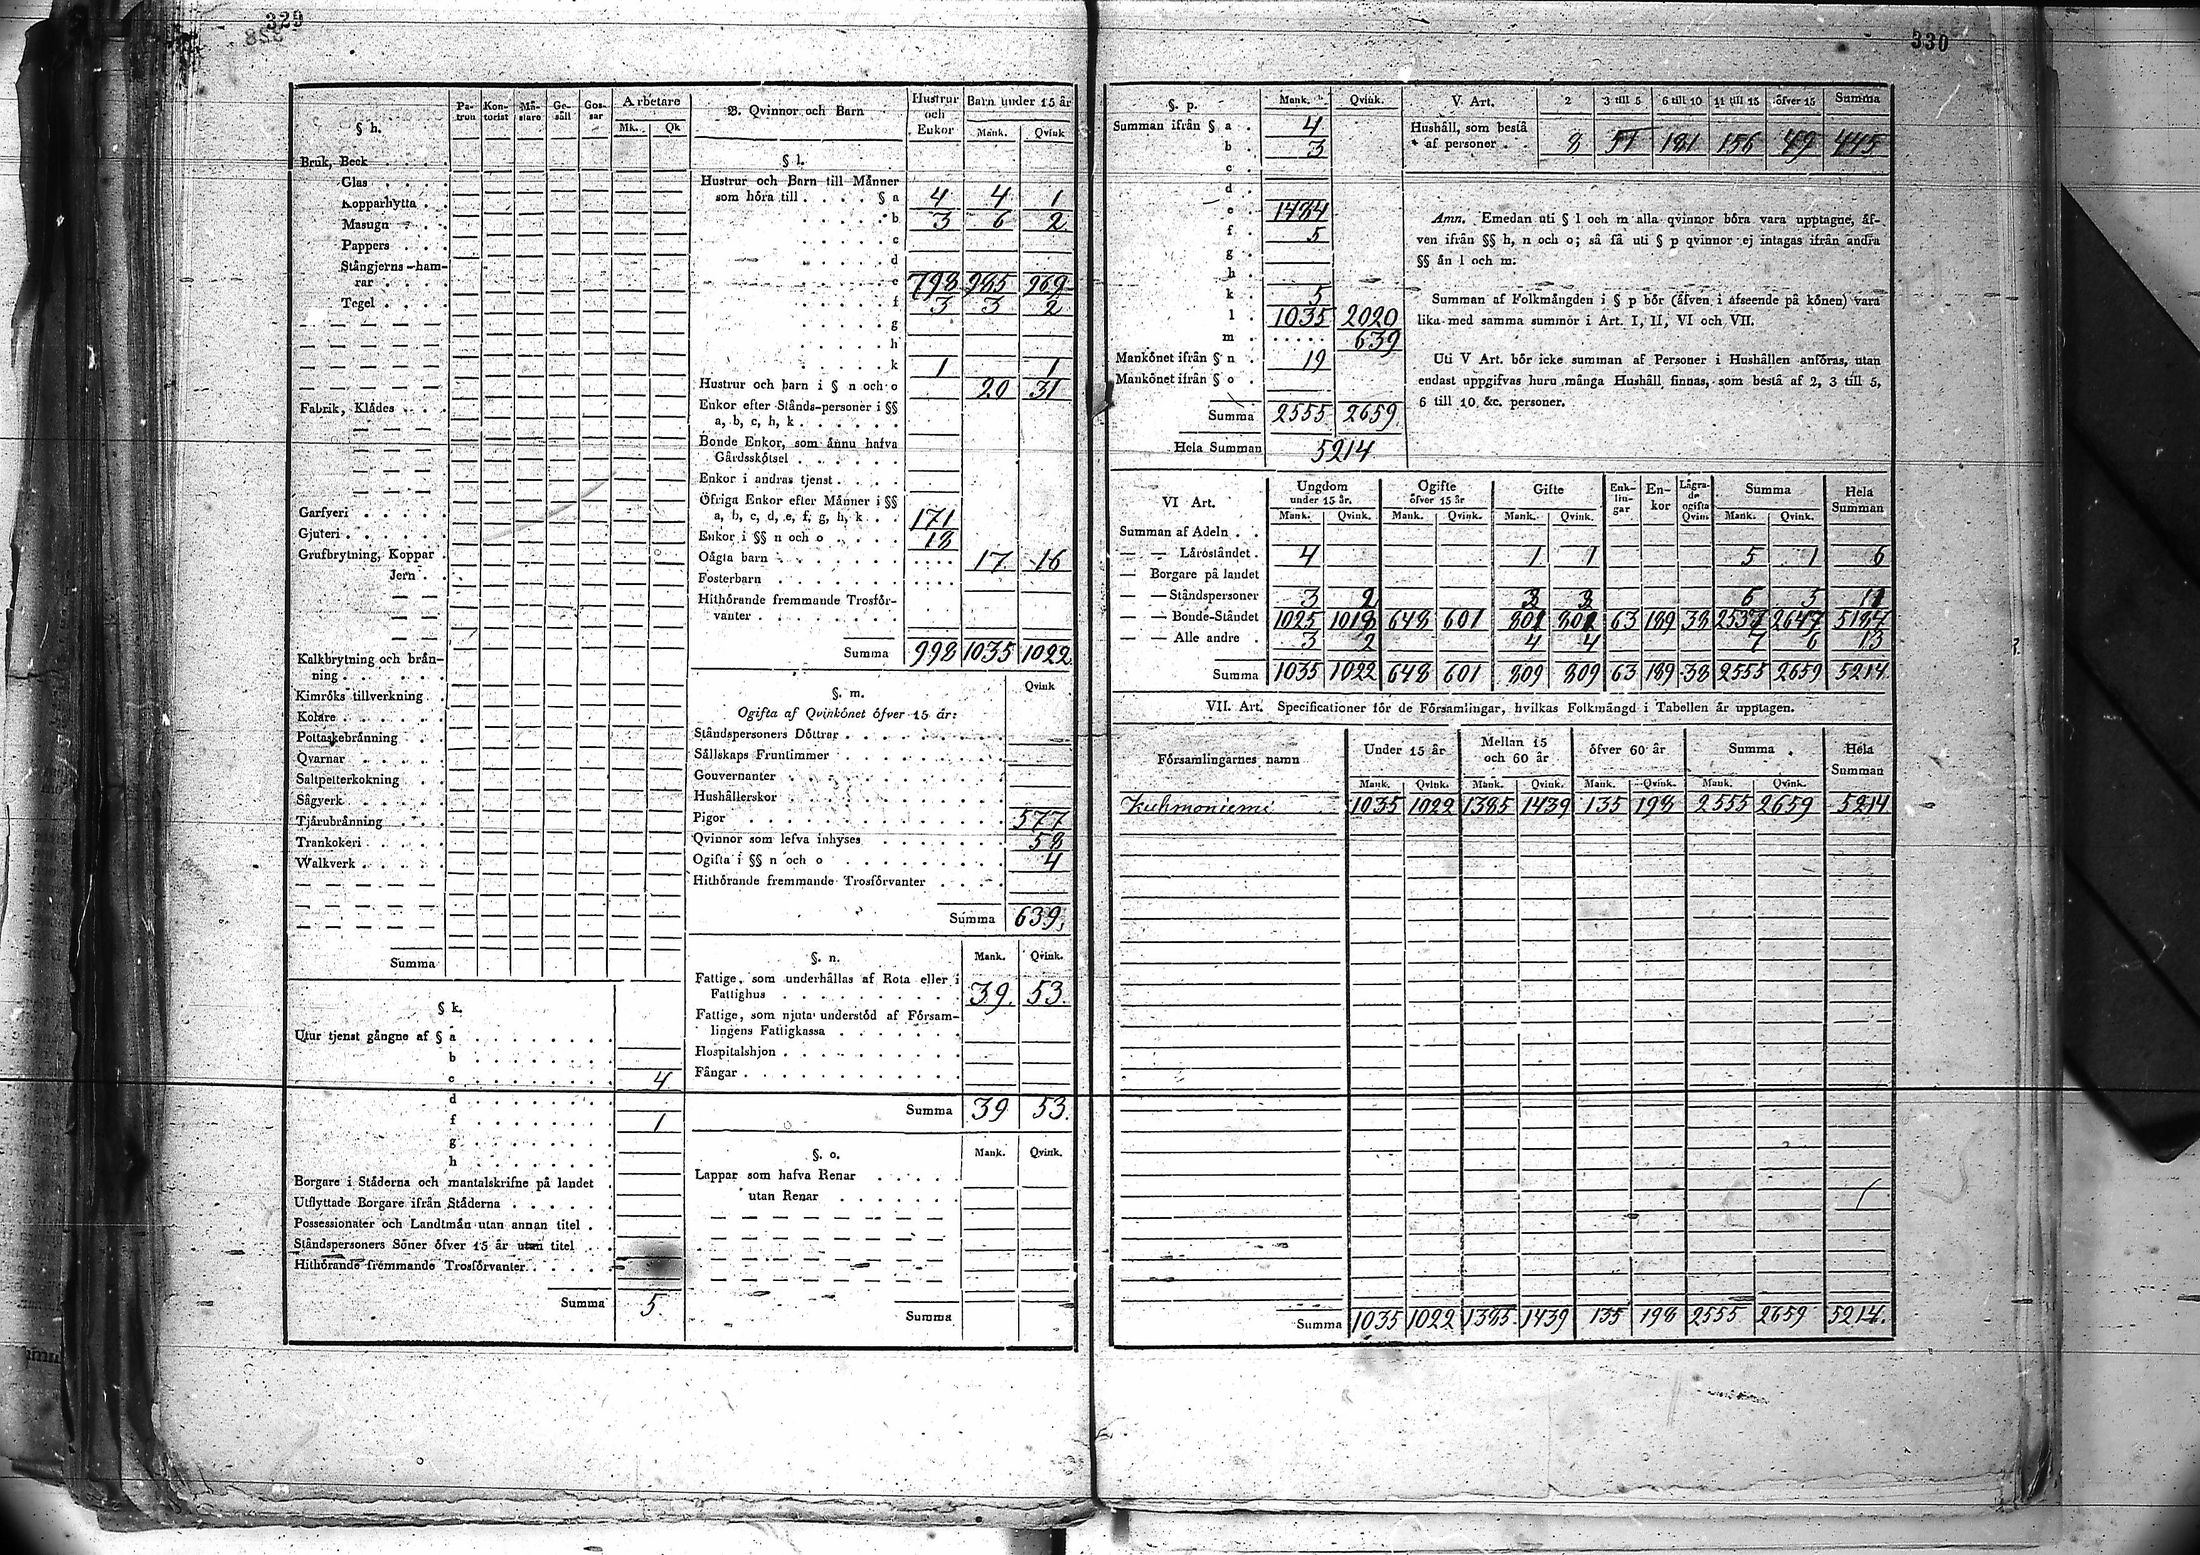 329
328
§ h.
Pa-tron Kon-torist Mä-stare Ge-säll Gos-sar Arbetare
Mk. Qk
Bruk, Beck
Glas
Kopparhytta
Masugn
Pappers
Stångjerns-ham-
rar
Tegel
Fabrik, Klädes
Garfveri
Gjuteri
Grufbrytning, Koppar
Jern
Kalkbrytning och brän-
ning
Kimröks tillverkning
Kolare
Pottaskebränning
Qvarnar
Saltpetterkokning
Sågverk
Tjärubränning
Trankokeri
Walkverk
Summa
§ k.
Utur tjenst gångne af § a
b
c 4
d
f 1
g
h
Borgare i Städerna och mantalskrifne på landet
Utflyttade Borgare ifrån Städerna
Possessionater och Landtmän utan annan titel
Ståndspersoners Söner öfver 15 år utan titel
Hithörande fremmande Trosförvanter
Summa 5.
B. Qvinnor och Barn Hustrur och Enkor Barn under 15 år
Mank. Qvink
§ l.
Hustrur och Barn till Männer
som höra till § a 4 4 1
b 3 6 2
c
d
e 798 985 969
f 3 3 2
g
h
k 1 1
Hustrur och barn i § n och o 20 31
Enkor efter Stånds-personer i §§
a, b, c, h, k
Bonde Enkor, som ännu hafva
Gårdsskötsel
Enkor i andras tjenst
Öfriga Enkor efter Männer i §§
a, b, c, d, e, f, g, h, k 171
Enkor i §§ n och o 18
Oägta barn 17 16
Fosterbarn
Hithörande fremmande Trosför-
vanter
Summa 998 1035 1022
§. m. Qvink
Ogifta af Qvinkönet öfver 15 år:
Ståndspersoners Döttrar
Sällskaps Fruntimmer
Gouvernanter
Hushållerskor
Pigor 577
Qvinnor som lefva inhyses 58
Ogifta i §§ n och o 4
Hithörande fremmande Trosförvanter
Summa 639,
§. n. Mank. Qvink.
Fattige, som underhållas af Rota eller i
Fattighus 39. 53.
Fattige, som njuta understöd af Försam-
lingens Fattigkassa
Hospitalshjon
Fångar
Summa 39 53.
§. o. Mank. Qvink.
Lappar som hafva Renar
utan Renar
Summa
330
§. p. Mank. Qvink.
Summan ifrån § a 4
b 3
c
d
e 1484
f 5
g
h
k 5
l 1035 2020
m 639
Mankönet ifrån § n 19
Mankönet ifrån § o
Summa 2555 2659
Hela Summan 5214
V. Art. 2 3 till 5 6 till 10 11 till 15 öfver 15 Summa
Hushåll, som bestå
af personer 8 51 181 156 49 445
Anm. Emedan uti § l och m alla qvinnor böra vara upptagne, äf-
ven ifrån §§ h, n och o; så få uti § p qvinnor ej intagas ifrån andra
§§ än l och m.
Summan af Folkmängden i § p bör (äfven i afseende på könen) vara
lika med samma summor i Art. I, II, VI och VII.
Uti V Art. bör icke summan af Personer i Hushållen anföras, utan
endast uppgifvas huru många Hushåll finnas, som bestå af 2, 3 till 5,
6 till 10, &c. personer.
VI Art. Ungdom under 15 år. Ogifte öfver 15 år Gifte Enk-lin-gar En-kor Lägra-de ogifta Qvin. Summa Hela Summan
Mank. Qvink. Mank. Qvink. Mank. Qvink. Mank. Qvink.
Summan af Adeln
— — Läroståndet 4 1 1 5 1 6
— Borgare på landet
— — Ståndspersoner 3 2 3 3 6 5 11
— — Bonde-Ståndet 1025 1018 648 601 801 801 63 189 38 2537 2647 5184
— — Alle andre 3 2 4 4 7 6 13
Summa 1035 1022 648 601 809 809 63 189 38 2555 2659 5214
VII. Art. Specificationer för de Församlingar, hvilkas Folkmängd i Tabellen är upptagen.
Församlingarnes namn Under 15 år Mellan 15 och 60 år öfver 60 år Summa Hela Summan
Mank. Qvink. Mank. Qvink. Mank. Qvink. Mank. Qvink.
Kuhmoniemi 1035 1022 1385 1439 135 198 2555 2659 5214
Summa 1035 1022 1385 1439 135 198 2555 2659 5214.